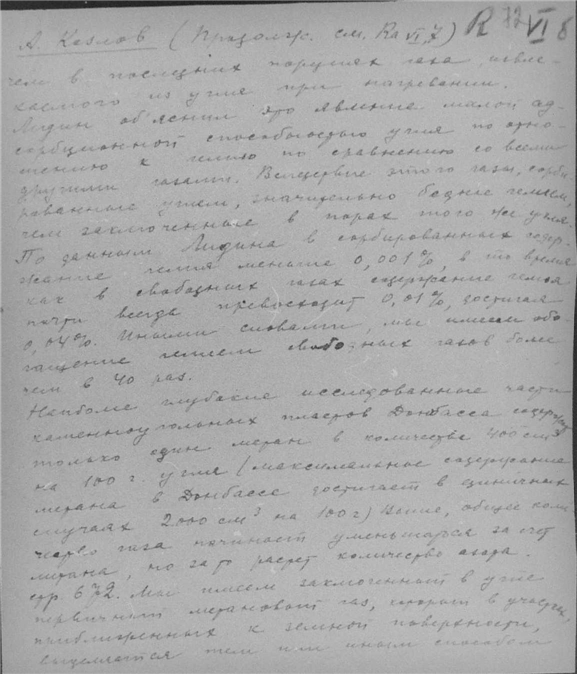 А. Козлов (Продолж. см. Ra VI, 7) R 72 VI 8
чем в последних порциях газа, извле-
каемого из угля при нагревании.
Лидин об'яснил это явление малой ад-
сорбционной способностью угля по отно-
шению к гелию по сравнению со всеми
другими газами. Вследствие этого газы, сорби-
рованные углем, значительно беднее гелием,
чем заключенные в порах того же угля.
По данным Лидина в сорбированных содер-
жание гелия меньше 0,001%, в то время
как в свободных газах содержание гелия
почти всегда превосходит 0,01%, достигая
0,04%. Иными словами, мы имеем обо-
гащение гелием свободных газов более
чем в 40 раз.
Наиболее глубокие исследованные части
каменноугольных пластов Донбасса содержат
только один метан в количестве 400 см3
на 100 г. угля (максимальное содержание
метана в Донбассе достигает в единичных
случаях 2000 см3 на 100 г) Выше, общее коли-
чество газа начинает уменьшаться за счет
метана, но за то растет количество азота.
стр 672. Мы имеем заключенный в угле
первичный метановый газ, который в участках,
приближенных к земной поверхности,
выделяется тем или иным способом